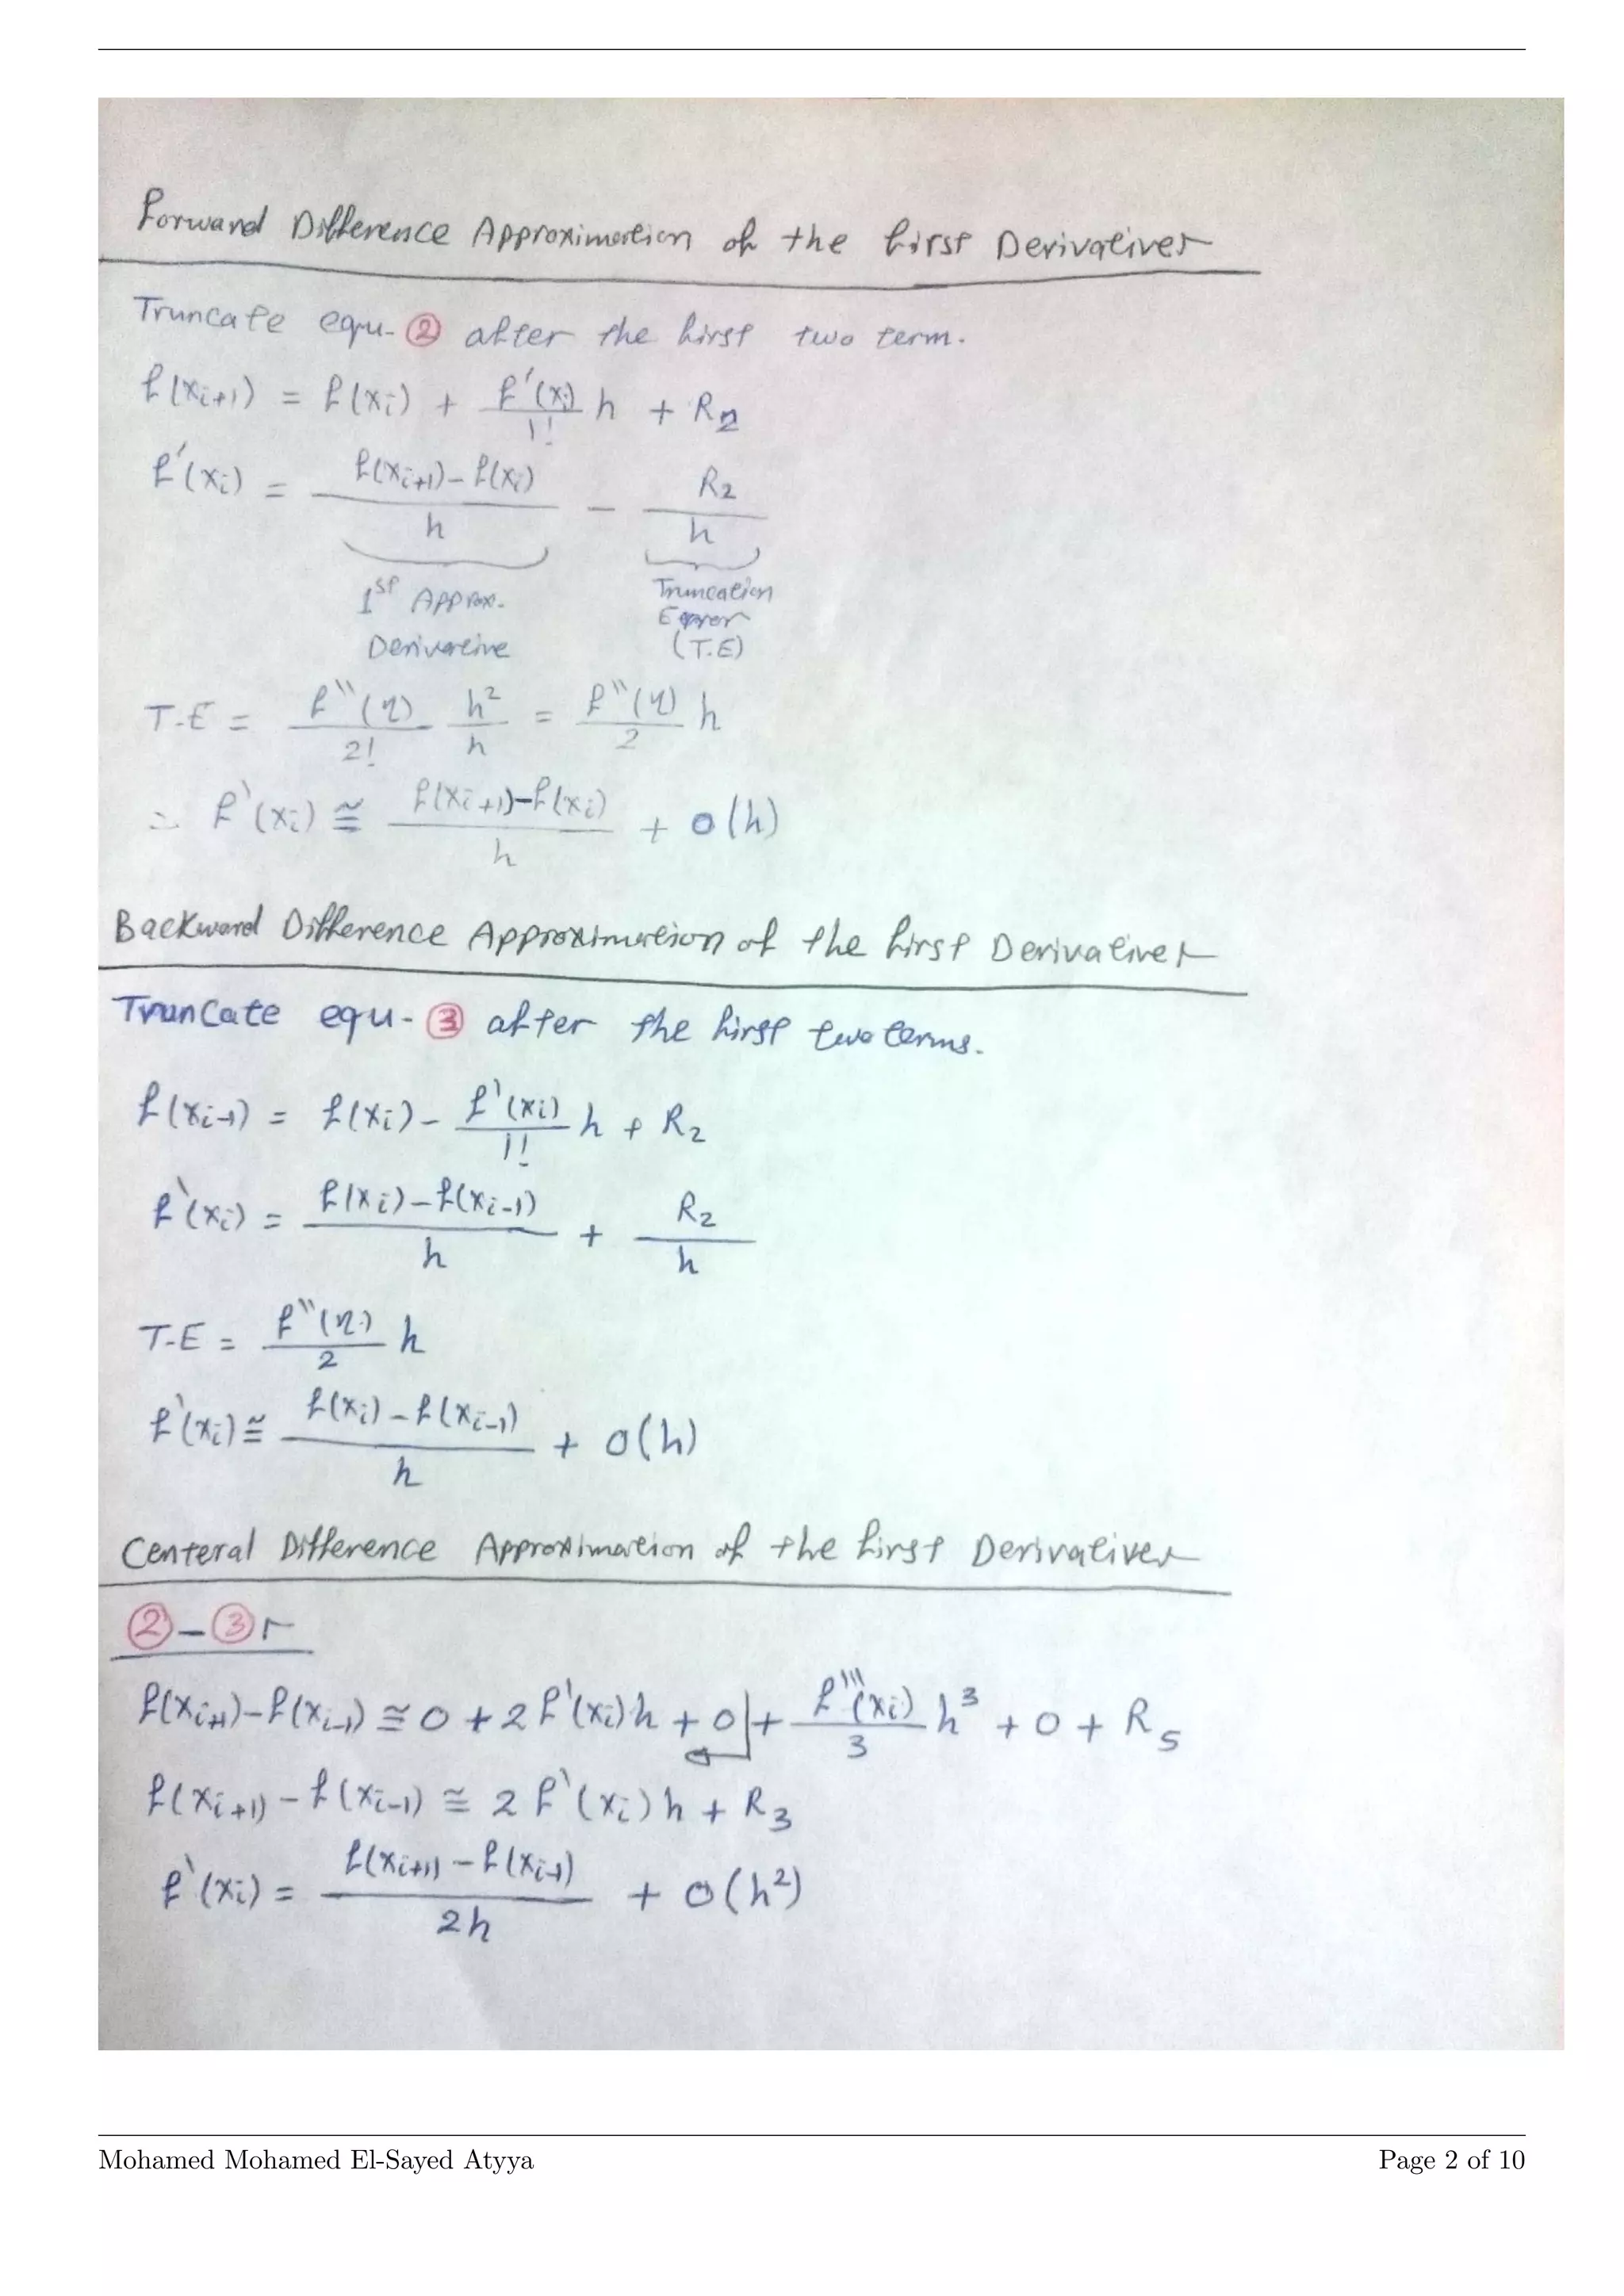 Forward Difference Approximation of the first Derivatives
Truncate equ. ② after the first two term.
f(xᵢ₊₁) = f(xᵢ) + f'(xᵢ)/1! h + R₂
f'(xᵢ) = (f(xᵢ₊₁) - f(xᵢ))/h - R₂/h
1st Approx. Truncation
Derivative Error
(T.E)
T.E = f''(η)/2! h²/h = f''(η)/2 h
∴ f'(xᵢ) ≅ (f(xᵢ₊₁) - f(xᵢ))/h + O(h)
Backward Difference Approximation of the first Derivative
Truncate equ. ③ after the first two terms.
f(xᵢ₋₁) = f(xᵢ) - f'(xᵢ)/1! h + R₂
f'(xᵢ) = (f(xᵢ) - f(xᵢ₋₁))/h + R₂/h
T.E = f''(η)/2 h
f'(xᵢ) ≅ (f(xᵢ) - f(xᵢ₋₁))/h + O(h)
Centeral Difference Approximation of the first Derivatives
② - ③
f(xᵢ₊₁) - f(xᵢ₋₁) ≅ 0 + 2f'(xᵢ)h + 0 + f'''(xᵢ)/3 h³ + 0 + R₅
f(xᵢ₊₁) - f(xᵢ₋₁) ≅ 2f'(xᵢ)h + R₃
f'(xᵢ) = (f(xᵢ₊₁) - f(xᵢ₋₁))/2h + O(h²)
Mohamed Mohamed El-Sayed Atyya Page 2 of 10